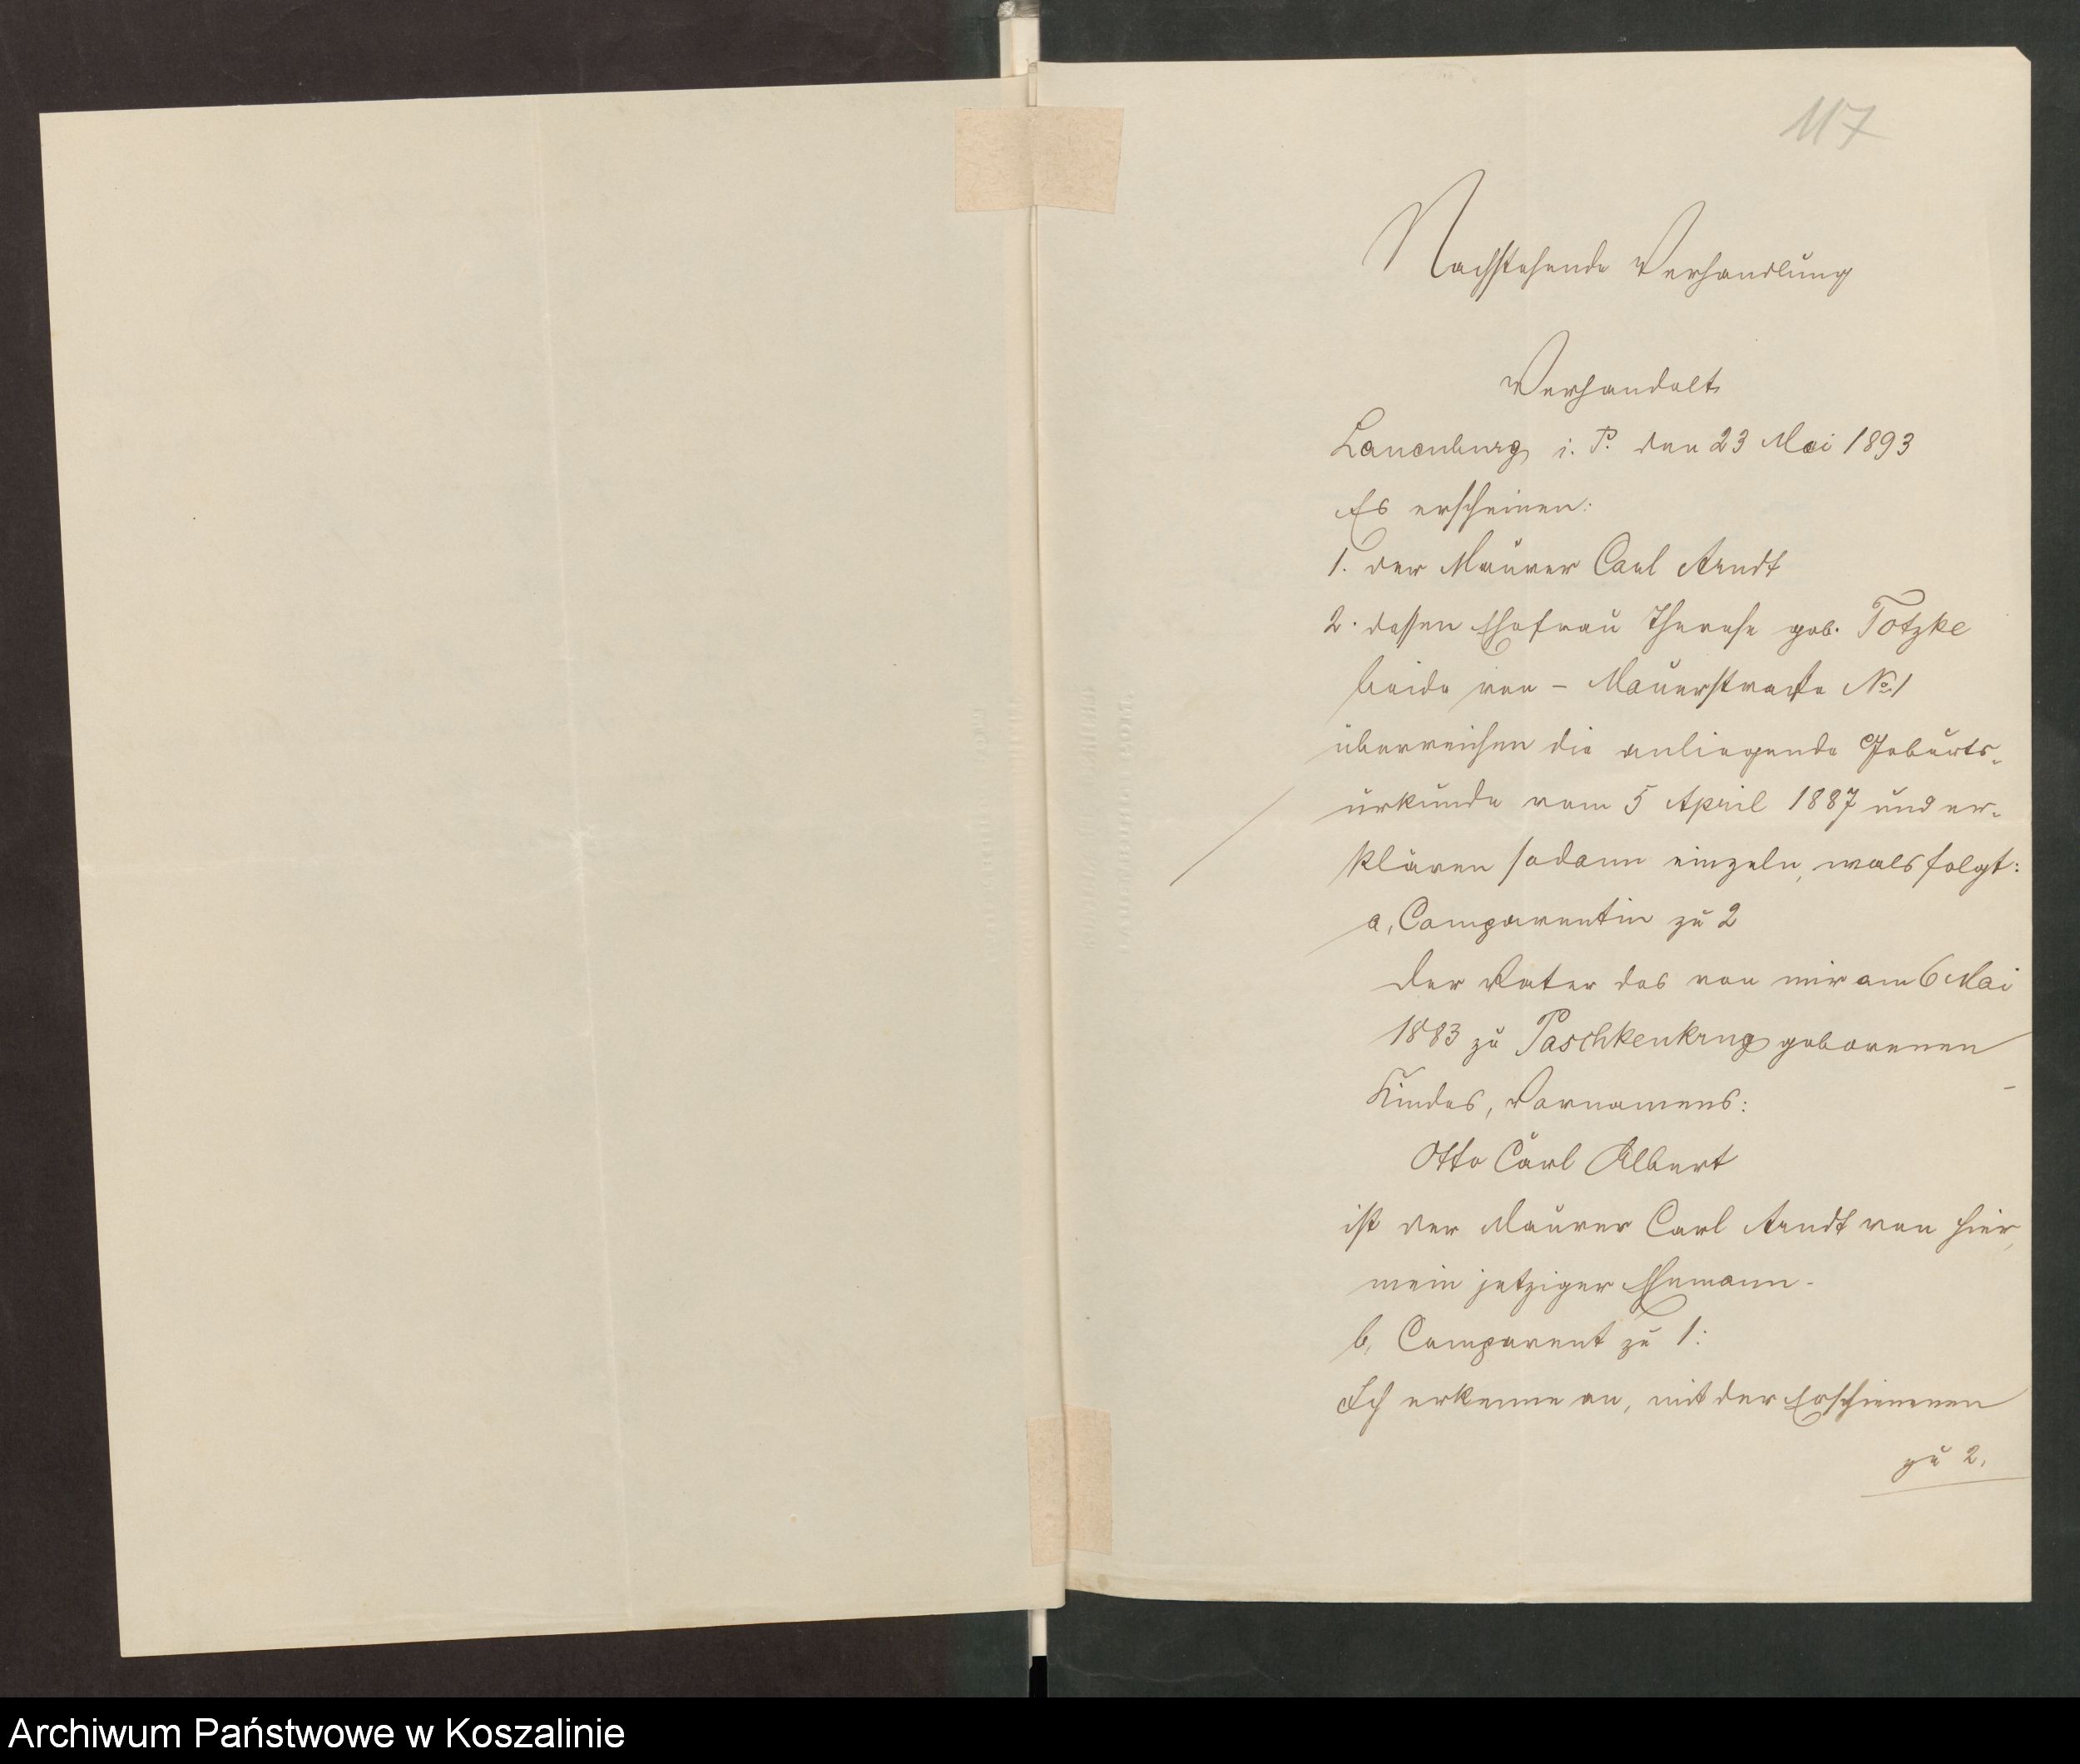 117
Nachstehende Verhandlung
Verhandelt
Lauenburg i. P. den 23 Mai 1893
Es erscheinen:
1. der Maurer Carl Arndt
2. dessen Ehefrau Therese geb. Totzke
beide von – Mauerstraße No 1
überreichen die anliegende Geburts-
urkunde vom 5 April 1887 und er-
klären sodann einzeln, was folgt:
a, Comparentin zu 2
Der Vater des von mir am 6 Mai
1883 zu Paschkenkrug geborenen
Kindes, Vornamens:
Otto Carl Albert
ist der Maurer Carl Arndt von hier,
mein jetziger Ehemann.
b, Comparent zu 1:
Ich erkenne an, mit der Erschienenen
zu 2.
Archiwum Państwowe w Koszalinie